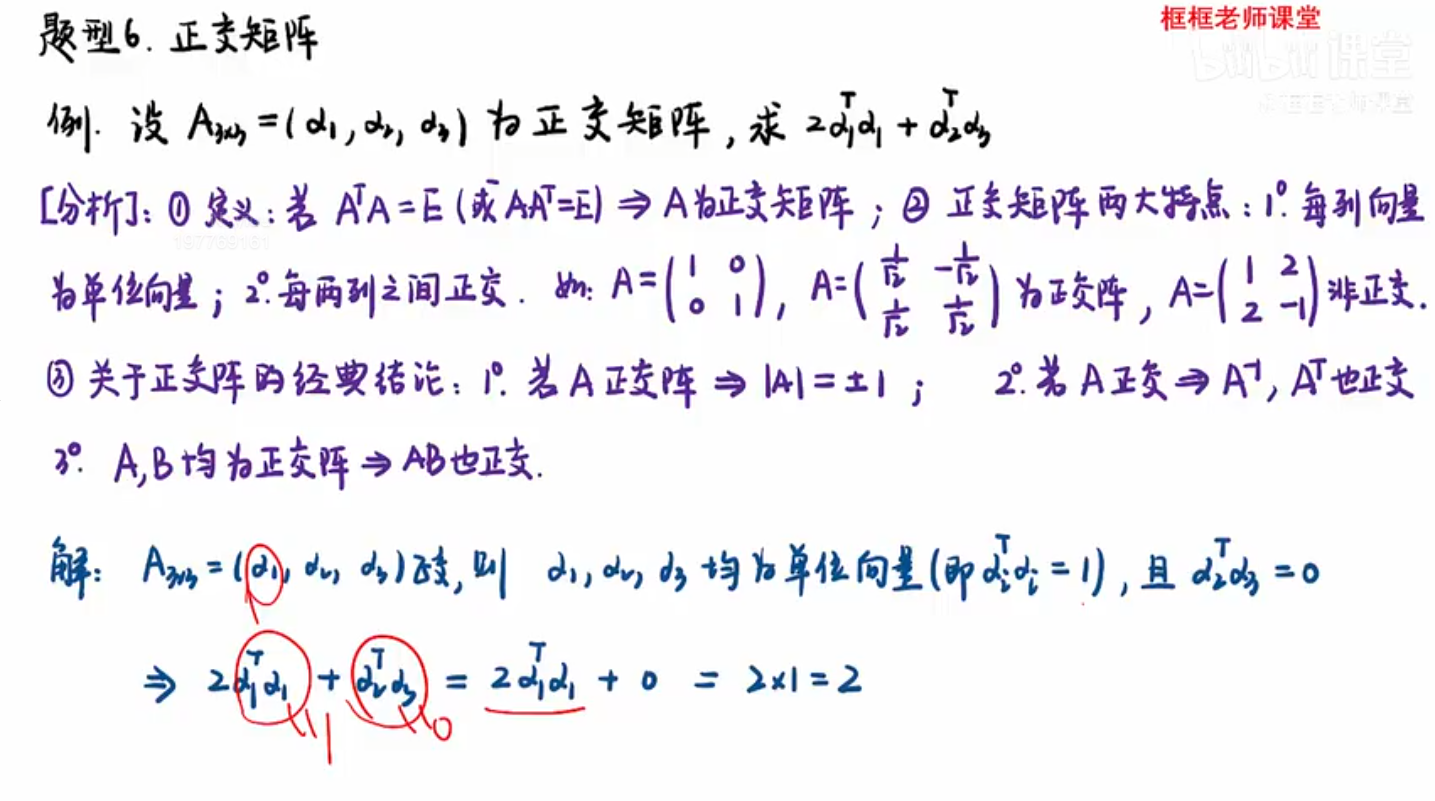 框框老师课堂
题型6. 正交矩阵
例. 设 A₃ₓ₃ = (α₁, α₂, α₃) 为正交矩阵, 求 2α₁ᵀα₁ + α₂ᵀα₃
[分析]: ① 定义: 若 AᵀA = E (或 AAᵀ=E) ⇒ A为正交矩阵; ② 正交矩阵两大特点: 1°. 每列向量
197769161
为单位向量; 2°. 每两列之间正交. 如: A = (1 0; 0 1), A = (1/√2 -1/√2; 1/√2 1/√2) 为正交阵, A = (1 2; 2 -1) 非正交.
③ 关于正交阵的经典结论: 1°. 若A正交阵 ⇒ |A| = ±1; 2°. 若A正交 ⇒ A⁻¹, Aᵀ也正交
3°. A,B均为正交阵 ⇒ AB也正交.
解: A₃ₓ₃ = (α₁, α₂, α₃)正交, 则 α₁, α₂, α₃ 均为单位向量(即 αᵢᵀαᵢ = 1), 且 α₂ᵀα₃ = 0
⇒ 2α₁ᵀα₁ + α₂ᵀα₃ = 2α₁ᵀα₁ + 0 = 2×1 = 2
1 0